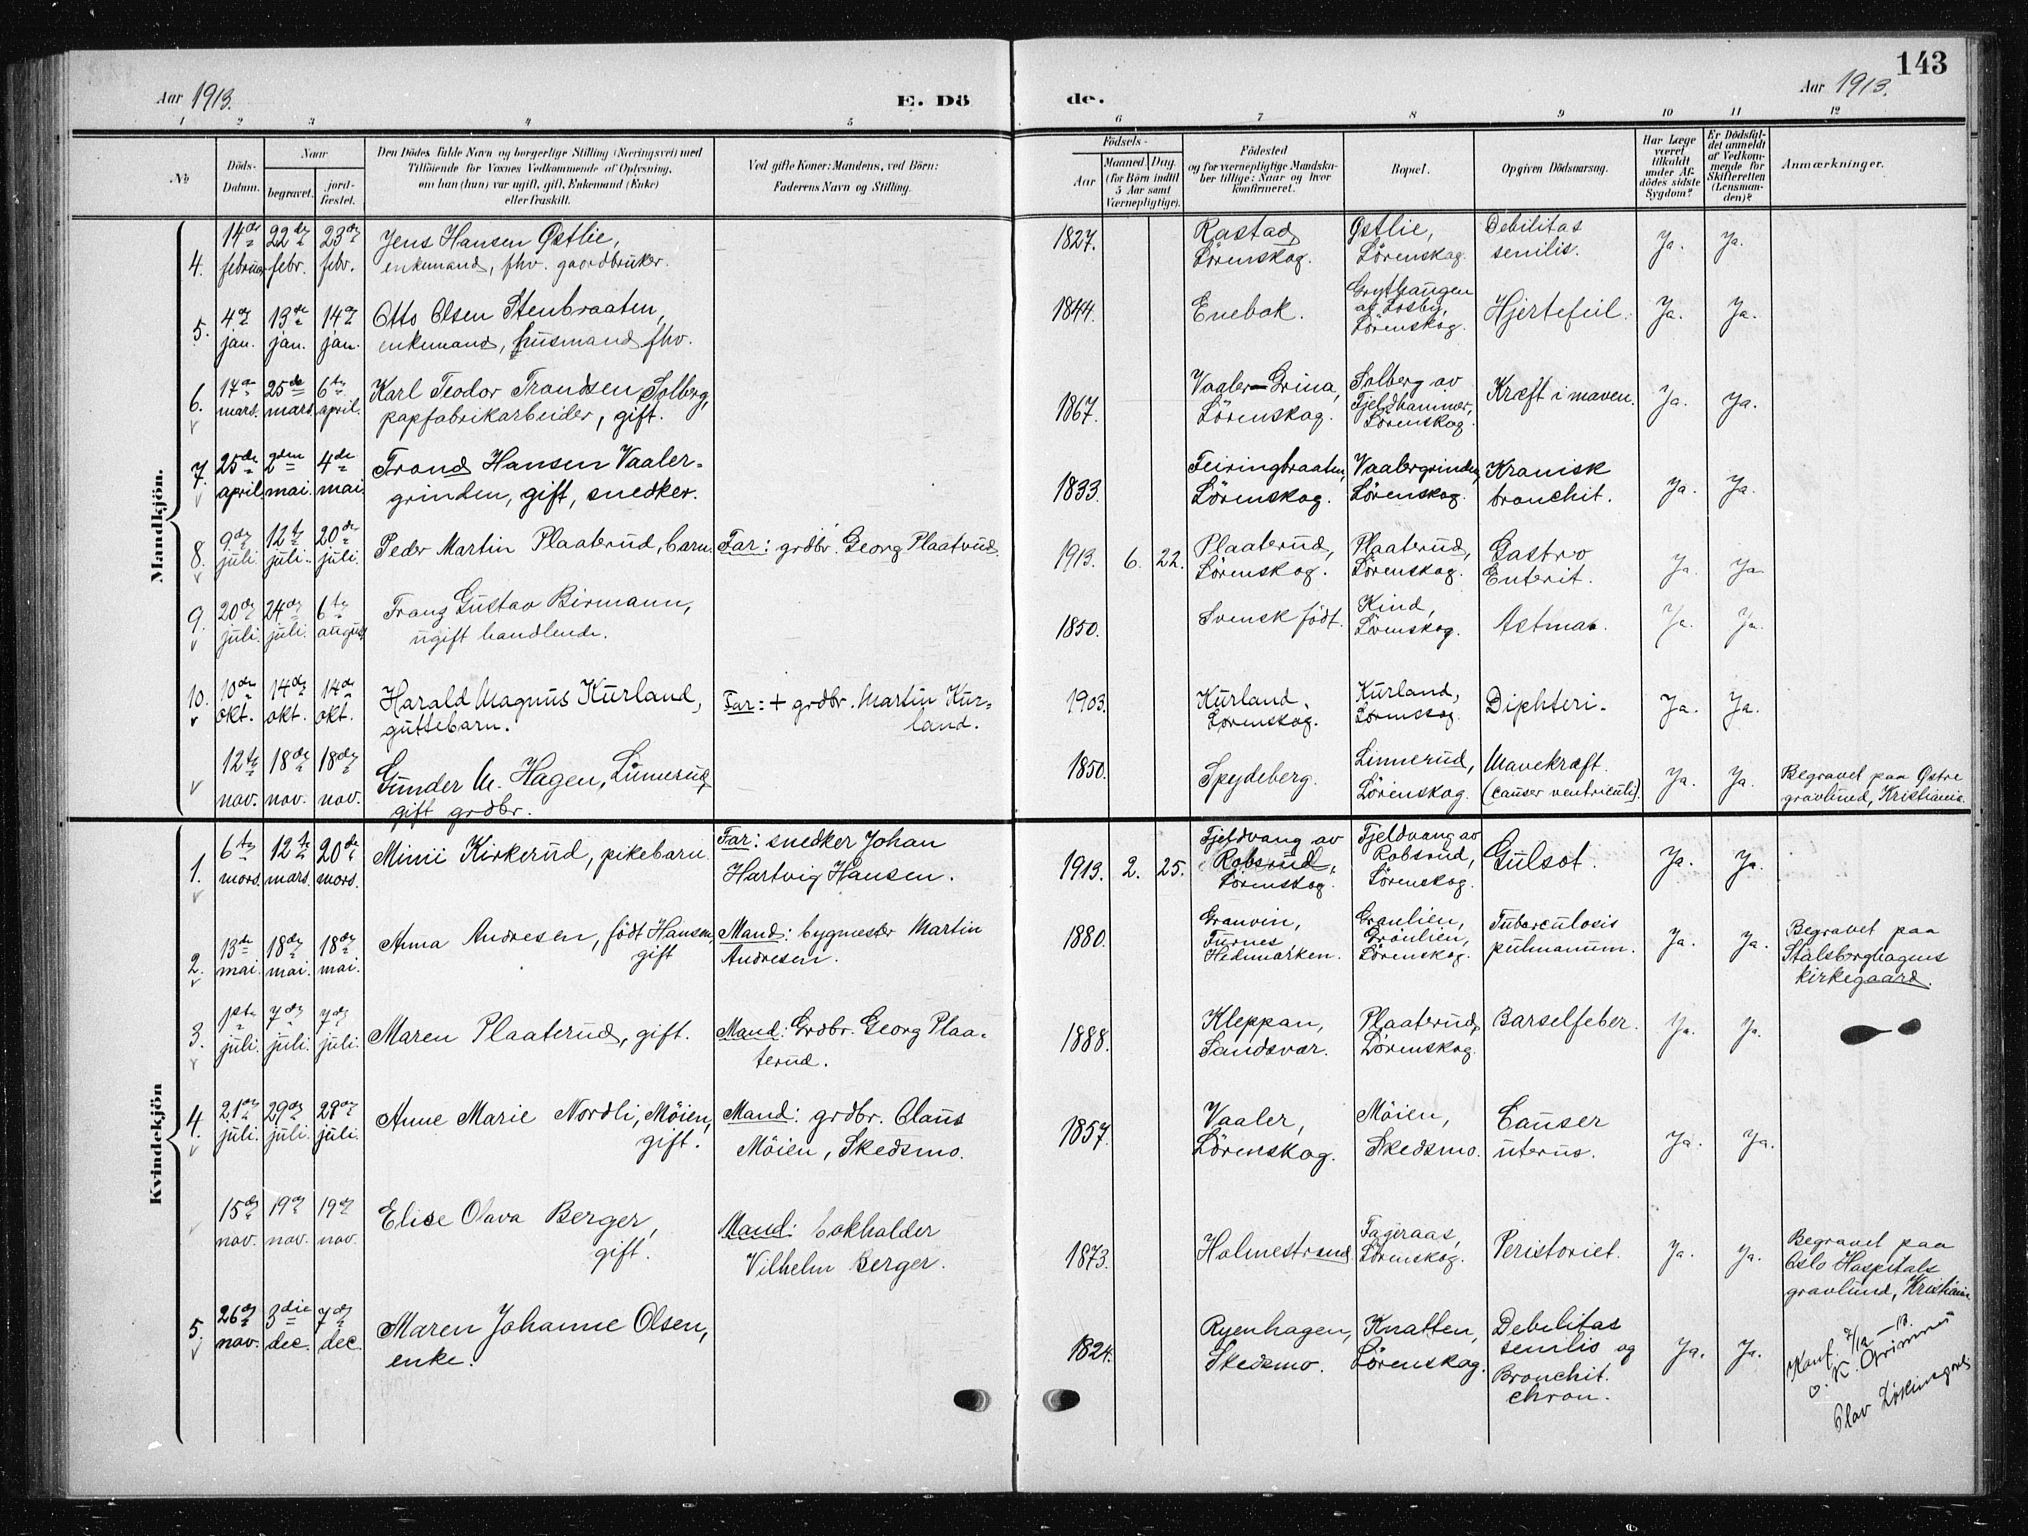 143
Aar 1913.
E. Dö
de.
Aar 1913.
1 2 3 4 5 6 7 8 9 10 11 12
No
Döds-
Datum.
Naar
begravet.
jord-
fæstet.
Den Dödes fulde Navn og borgerlige Stilling (Næringsvei) med
Tilföiende for Voxnes Vedkommende af Oplysning,
om han (hun) var ugift, gift, Enkemand (Enke)
eller fraskilt.
Ved gifte Koner: Mandens, ved Börn:
Faderens Navn og Stilling.
Födsels-
Aar
Maaned
Dag.
(for Börn indtil
5 Aar samt
Værnepligtige).
Födested
og for værnepligtige Mandska-
ber tillige: Naar og hvor
konfirmeret.
Bopæl.
Opgiven Dödsaarsag.
Har Læge
været
tilkaldt
under Af-
dödes sidste
Sygdom?
Er Dödsfal-
det anmeldt
af Vedkom-
mende for
Skifteretten
(Lensman-
den)?
Anmærkninger.
Mandkjön.
4. 14de februar 22de febr. 23de febr. Jens Hansen Østlie, 1827. Rastad Østlie, Debilitas Ja. Ja.
enkemand, fhv. gaardbruker. Lörenskog. Lörenskog. senilis.
5. 4de jan. 13de jan. 14de jan. Otto Olsen Stenbraaten, 1844. Enebak. Grythaugen Hjertefeil. Ja. Ja.
enkemand, husmand fhv. av Losby,
Lörenskog.
6. 17de mars. 25de mars. 6te april. Karl Teodor Trandsen Solberg, 1867. Vaaler-Grina, Solberg av Kræft i maven. Ja. Ja.
papfabrikarbeider, gift. Lörenskog. Fjeldhammer,
Lörenskog.
7. 25de april. 2den mai. 4de mai. Trond Hansen Vaaler- 1833. Feiringbraaten, Vaalergrinden, Kranisk Ja. Ja.
grinden, gift, snedker. Lörenskog. Lörenskog. bronchit.
8. 9de juli. 12te juli. 20de juli. Peder Martin Plaaterud, barn. Far: grdbr. Georg Plaatrud. 1913. 6. 22. Plaaterud, Plaaterud, Gastro Ja. Ja.
Lörenskog. Lörenskog. Enterit.
9. 20de juli. 24de juli. 6te august Franz Gustav Birmann, 1850. Svensk födt. Kind, Astma. Ja. Ja.
ugift handlende. Lörenskog.
10. 10de okt. 14de okt. 14de okt. Harald Magnus Kurland, Far: + grdbr. Martin Kur- 1903. Kurland, Kurland, Diphteri. Ja. Ja.
guttebarn. land. Lörenskog. Lörenskog.
12te nov. 18de nov. 18de nov. Gunder M. Hagen, Linnerud, 1850. Spydeberg. Linnerud, Mavekræft. Ja. Ja. Begravet paa Østre
gift grdbr. Lörenskog. (causer ventriculi). gravlund, Kristiania.
Kvindekjön
1. 6te mars. 12te mars. 20de mars. Mimi Kirkerud, pikebarn. Far: snedker Johan 1913. 2. 25. Fjeldvang av Fjeldvang av Gulsot. Ja. Ja.
Hartvig Hansen. Robsrud, Robsrud,
Lörenskog. Lörenskog.
2. 13de mai. 18de mai. 18de mai. Anna Andresen, födt Hansen, Mand: bygmester Martin 1880. Granvin, Granlien, Tuberculosis Ja. Ja. Begravet paa
gift Andresen. Furnes, Grönlien, pulmanum. Stalsberghagens
Hedmarken. Lörenskog. kirkegaard.
3. 1ste juli. 7de juli. 7de juli. Maren Plaaterud, gift. Mand: Grdbr. Georg Plaa- 1888. Kleppan, Plaaterud, Barselfeber. Ja. Ja.
terud. Sandsvær. Lörenskog.
4. 21de juli. 29de juli. 29de juli. Anne Marie Nordli, Möien, Mand: grdbr. Claus 1857. Vaaler, Möien, Causer Ja. Ja.
gift. Möien, Skedsmo. Lörenskog. Skedsmo. uterus.
15de nov. 19de nov. 19de nov. Elise Olava Berger, Mand: bokholder 1873. Holmestrand Fageraas, Peristoriet. Ja. Ja. Begravet paa
gift. Vilhelm Berger. Lörenskog. Oslo Hospitals
gravlund, Kristiania
5. 26de nov. 3die dec. 7de dec. Maren Johanne Olsen, 1824. Ryenhagen, Knatten, Debilitas Ja. Ja.
enke. Skedsmo. Lörenskog. senilis og
Bronchit.
chron.
Konf. 2/12-13.
o. K. Grimnes
Olav